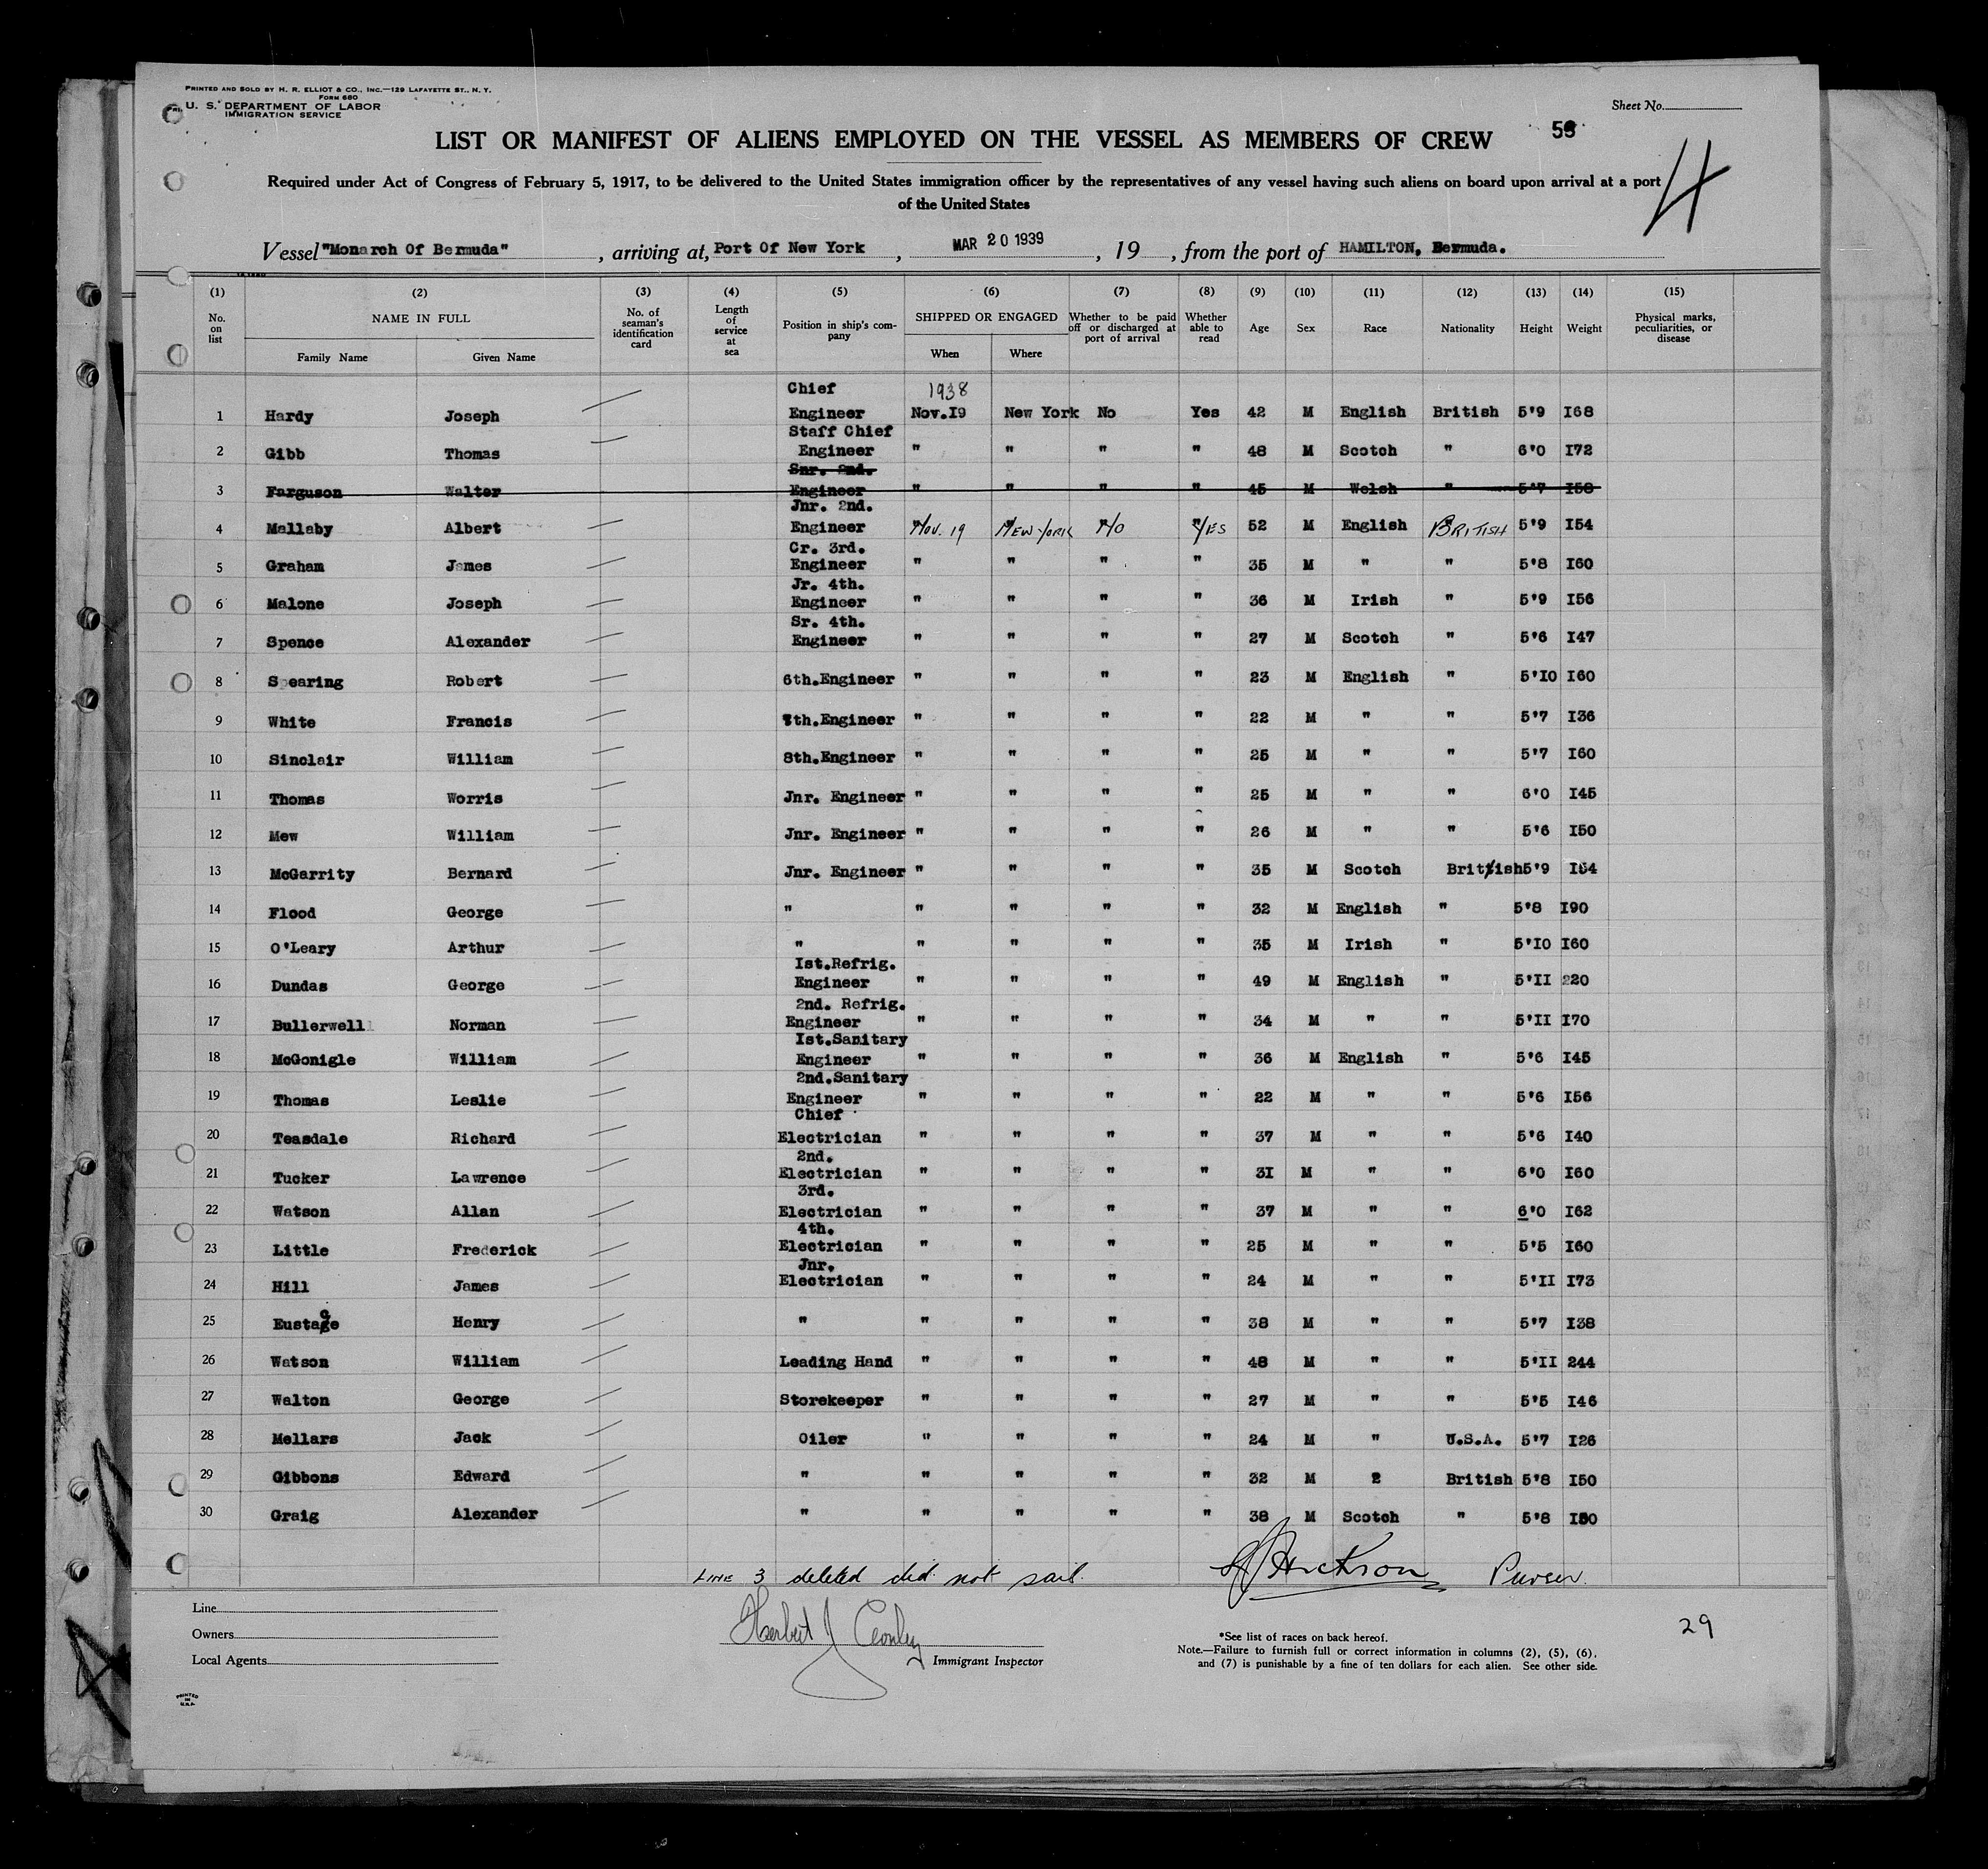 PRINTED AND SOLD BY H. R. ELLIOT & CO., INC.—129 LAFAYETTE ST., N. Y.
FORM 680
U. S. DEPARTMENT OF LABOR
IMMIGRATION SERVICE
Sheet No.
LIST OR MANIFEST OF ALIENS EMPLOYED ON THE VESSEL AS MEMBERS OF CREW
4
Required under Act of Congress of February 5, 1917, to be delivered to the United States immigration officer by the representatives of any vessel having such aliens on board upon arrival at a port
of the United States
Vessel "Monarch Of Bermuda" , arriving at, Port Of New York , MAR 20 1939 , 19 , from the port of HAMILTON, Bermuda.
(1) (2) (3) (4) (5) (6) (7) (8) (9) (10) (11) (12) (13) (14) (15)
No. on list NAME IN FULL Family Name Given Name No. of seaman's identification card Length of service at sea Position in ship's company SHIPPED OR ENGAGED When Where Whether to be paid off or discharged at port of arrival Whether able to read Age Sex Race Nationality Height Weight Physical marks, peculiarities, or disease
1 Hardy Joseph Chief Engineer 1938 Nov.I9 New York No Yes 42 M English British 5'9 I68
2 Gibb Thomas Staff Chief Engineer " " " " 48 M Scotch " 6'0 I72
3 Farguson Walter Snr. 2nd. Engineer " " " " 45 M Welsh " 5'7 I58
4 Mallaby Albert Jnr. 2nd. Engineer Nov. 19 NEW-YORK No YES 52 M English BRITISH 5'9 I54
5 Graham James Cr. 3rd. Engineer " " " " 35 M " " 5'8 I60
6 Malone Joseph Jr. 4th. Engineer " " " " 36 M Irish " 5'9 I56
7 Spence Alexander Sr. 4th. Engineer " " " " 27 M Scotch " 5'6 I47
8 Spearing Robert 6th.Engineer " " " " 23 M English " 5'IO I60
9 White Francis 7th.Engineer " " " " 22 M " " 5'7 I36
10 Sinclair William 8th.Engineer " " " " 25 M " " 5'7 I60
11 Thomas Worris Jnr. Engineer " " " " 25 M " " 6'0 I45
12 Mew William Jnr. Engineer " " " " 26 M " " 5'6 I50
13 McGarrity Bernard Jnr. Engineer " " " " 35 M Scotch British 5'9 I54
14 Flood George " " " " " 32 M English " 5'8 I90
15 O'Leary Arthur " " " " " 35 M Irish " 5'IO I60
16 Dundas George Ist.Refrig. Engineer " " " " 49 M English " 5'II 220
17 Bullerwell Norman 2nd. Refrig. Engineer " " " " 34 M " " 5'II I70
18 McGonigle William Ist.Sanitary Engineer " " " " 36 M English " 5'6 I45
19 Thomas Leslie 2nd.Sanitary Engineer " " " " 22 M " " 5'6 I56
20 Teasdale Richard Chief Electrician " " " " 37 M " " 5'6 I40
21 Tucker Lawrence 2nd. Electrician " " " " 3I M " " 6'0 I60
22 Watson Allan 3rd. Electrician " " " " 37 M " " 6'0 I62
23 Little Frederick 4th. Electrician " " " " 25 M " " 5'5 I60
24 Hill James Jnr. Electrician " " " " 24 M " " 5'II I73
25 Eustace Henry " " " " " 38 M " " 5'7 I38
26 Watson William Leading Hand " " " " 48 M " " 5'II 244
27 Walton George Storekeeper " " " " 27 M " " 5'5 I46
28 Mellars Jack Oiler " " " " 24 M " U.S.A. 5'7 I26
29 Gibbons Edward " " " " " 32 M 2 British 5'8 I50
30 Graig Alexander " " " " " 38 M Scotch " 5'8
LINE 3 deleted did not sail. Purser.
Line
Owners
Local Agents
Herbert J Conley
Immigrant Inspector
29
*See list of races on back hereof.
Note.—Failure to furnish full or correct information in columns (2), (5), (6),
and (7) is punishable by a fine of ten dollars for each alien. See other side.
PRINTED
IN
U.S.A.